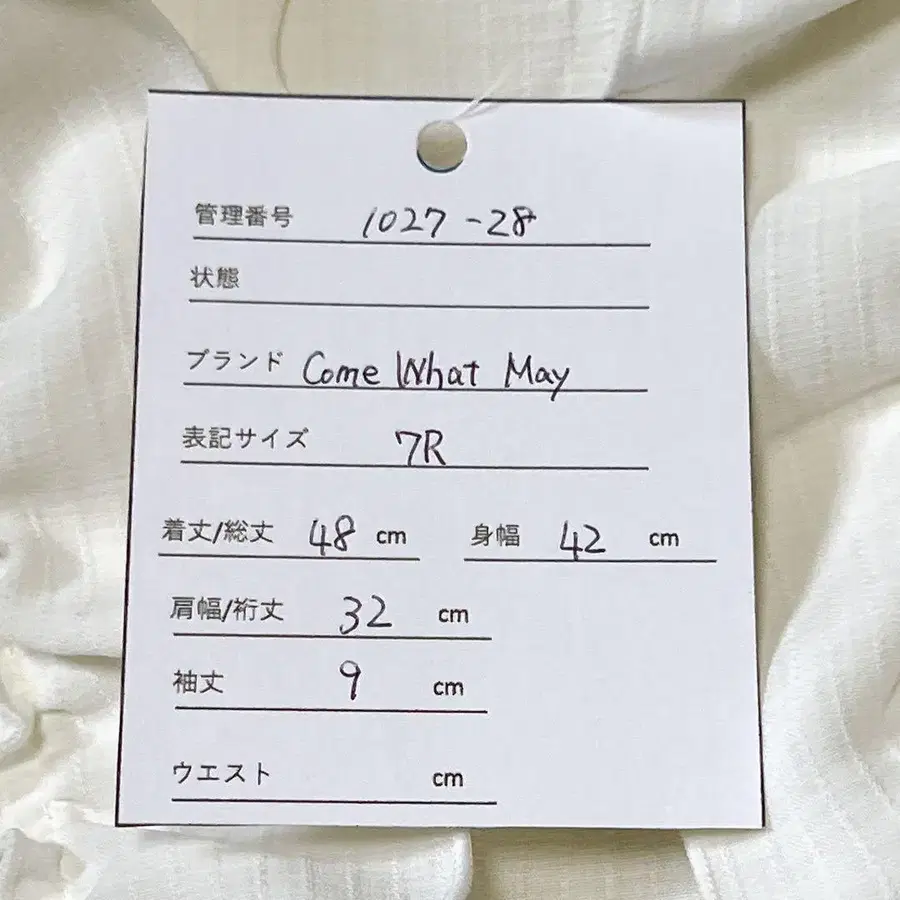 管理番号 1027-28
状態
ブランド Come What May
表記サイズ 7R
着丈/総丈 48 cm 身幅 42 cm
肩幅/裄丈 32 cm
袖丈 9 cm
ウエスト cm